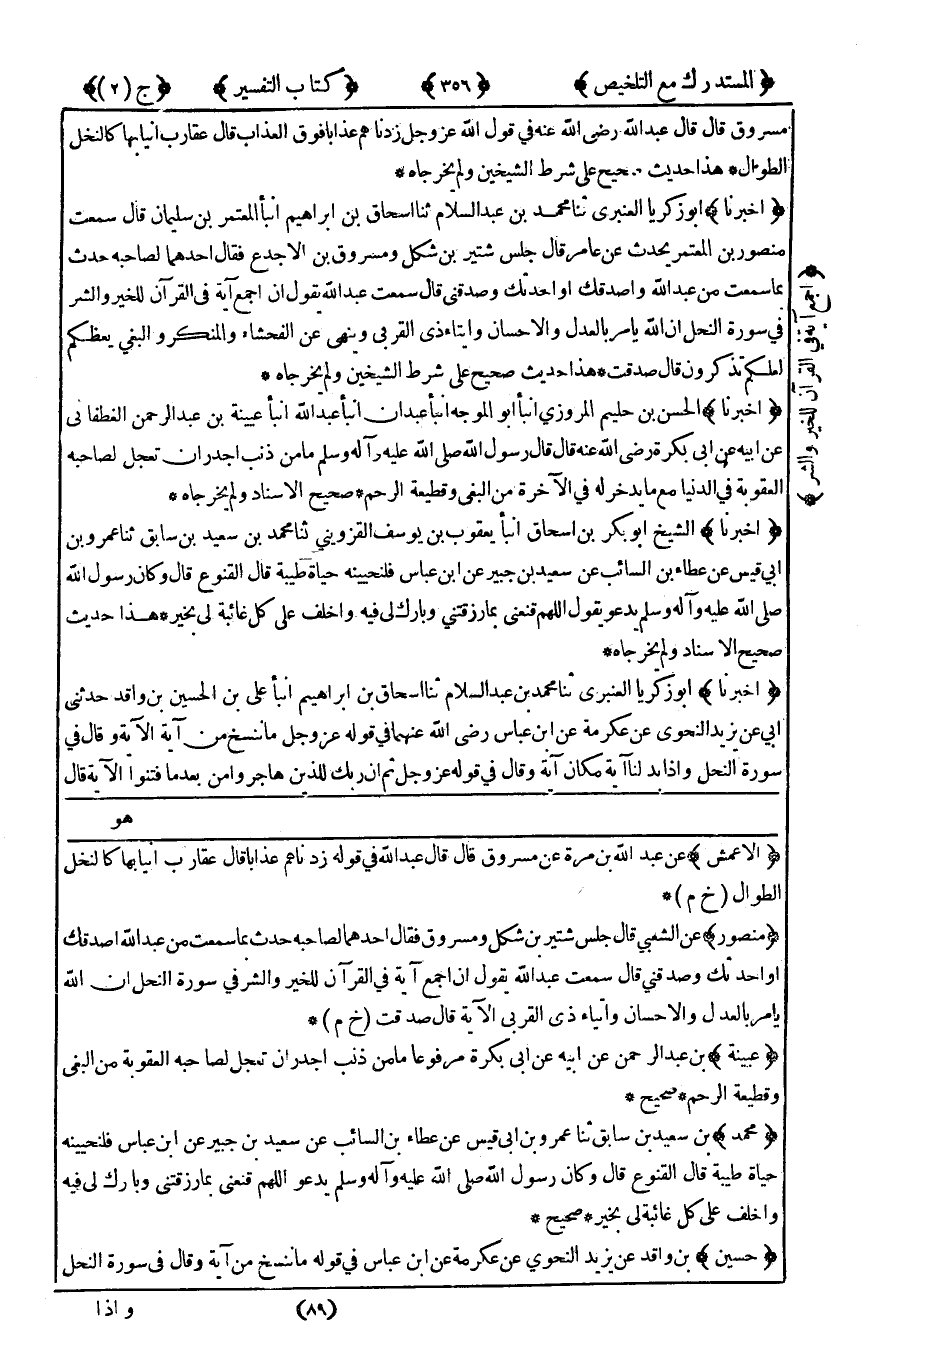 ﴿ المستدرك مع التلخيص ﴾ ﴿ ٣٥٦ ﴾ ﴿ كتاب التفسير ﴾ ﴿ ج (٢) ﴾
مسروق قال قال عبدالله رضى الله عنه فى قول الله عزوجل زدناهم عذابا فوق العذاب قال عقارب انيابها كالنخل
الطوال * هذا حديث صحيح على شرط الشيخين ولم يخرجاه *
﴿ اخبرنا ﴾ ابوزكريا العنبرى ثنا محمد بن عبدالسلام ثنا اسحاق بن ابراهيم انبأ المعتمر بن سليمان قال سمعت
منصور بن المعتمر يحدث عن عامر قال جلس شتير بن شكل ومسروق بن الاجدع فقال احدهما لصاحبه حدث
بما سمعت من عبدالله واصدقك او احدثك وصدقنى قال سمعت عبدالله يقول ان اجمع آية فى القرآن للخير والشر
فى سورة النحل ان الله يامر بالعدل والاحسان وايتاء ذى القربى وينهى عن الفحشاء والمنكر و البغي يعظكم
لعلكم تذكرون قال صدقت * هذا حديث صحيح على شرط الشيخين ولم يخرجاه *
﴿ اخبرنا ﴾ الحسن بن حليم المروزي انبأ ابو الموجه انبأ عبدان انبأ عبدالله انبأ عيينة بن عبدالرحمن الغطفانى
عن ابيه عن ابى بكرة رضى الله عنه قال قال رسول الله صلى الله عليه وآله وسلم مامن ذنب اجدر ان تعجل لصاحبه
العقوبة فى الدنيا مع ما يدخر له فى الآخرة من البغى وقطيعة الرحم * صحيح الاسناد ولم يخرجاه *
﴿ اخبرنا ﴾ الشيخ ابوبكر بن اسحاق انبأ يعقوب بن يوسف القزويني ثنا محمد بن سعيد بن سابق ثنا عمرو بن
ابى قيس عن عطاء بن السائب عن سعيد بن جبير عن ابن عباس فلنحيينه حياة طيبة قال القنوع قال وكان رسول الله
صلى الله عليه وآله وسلم يدعو يقول اللهم قنعنى بما رزقتنى وبارك لى فيه واخلف على كل غائبة لى بخير * هذا حديث
صحيح الاسناد ولم يخرجاه *
﴿ اخبرنا ﴾ ابوزكريا العنبرى ثنا محمد بن عبدالسلام ثنا اسحاق بن ابراهيم انبأ على بن الحسين بن واقد حدثنى
ابى عن يزيد النحوى عن عكرمة عن ابن عباس رضى الله عنهما فى قوله عزوجل ما ننسخ من آية الآية و قال فى
سورة النحل واذا بدلنا آية مكان آية وقال فى قوله عزوجل ثم ان ربك للذين هاجروا من بعد ما فتنوا الآية قال
هو
﴿ اجمع آية في القرآن للخير والشر ﴾
﴿ الاعمش ﴾ عن عبد الله بن مرة عن مسروق قال قال عبدالله فى قوله زدناهم عذابا قال عقارب انيابها كالنخل
الطوال (خ م) *
﴿ منصور ﴾ عن الشعبى قال جلس شتير بن شكل ومسروق فقال احدهما لصاحبه حدث بما سمعت من عبدالله اصدقك
او احدثك وصدقني قال سمعت عبدالله يقول ان اجمع آية فى القرآن للخير والشر فى سورة النحل ان الله
يامر بالعدل والاحسان وايتاء ذى القربى الآية قال صدقت (خ م) *
﴿ عيينة ﴾ بن عبدالرحمن عن ابيه عن ابى بكرة مرفوعا مامن ذنب اجدر ان تعجل لصاحبه العقوبة من البغى
وقطيعة الرحم * صحيح *
﴿ محمد ﴾ بن سعيد بن سابق ثنا عمرو بن ابى قيس عن عطاء بن السائب عن سعيد بن جبير عن ابن عباس فلنحيينه
حياة طيبة قال القنوع قال وكان رسول الله صلى الله عليه وآله وسلم يدعو اللهم قنعنى بما رزقتنى وبارك لى فيه
واخلف على كل غائبة لى بخير * صحيح *
﴿ حسين ﴾ بن واقد عن يزيد النحوي عن عكرمة عن ابن عباس فى قوله ما ننسخ من آية وقال فى سورة النحل
(٨٩) واذا